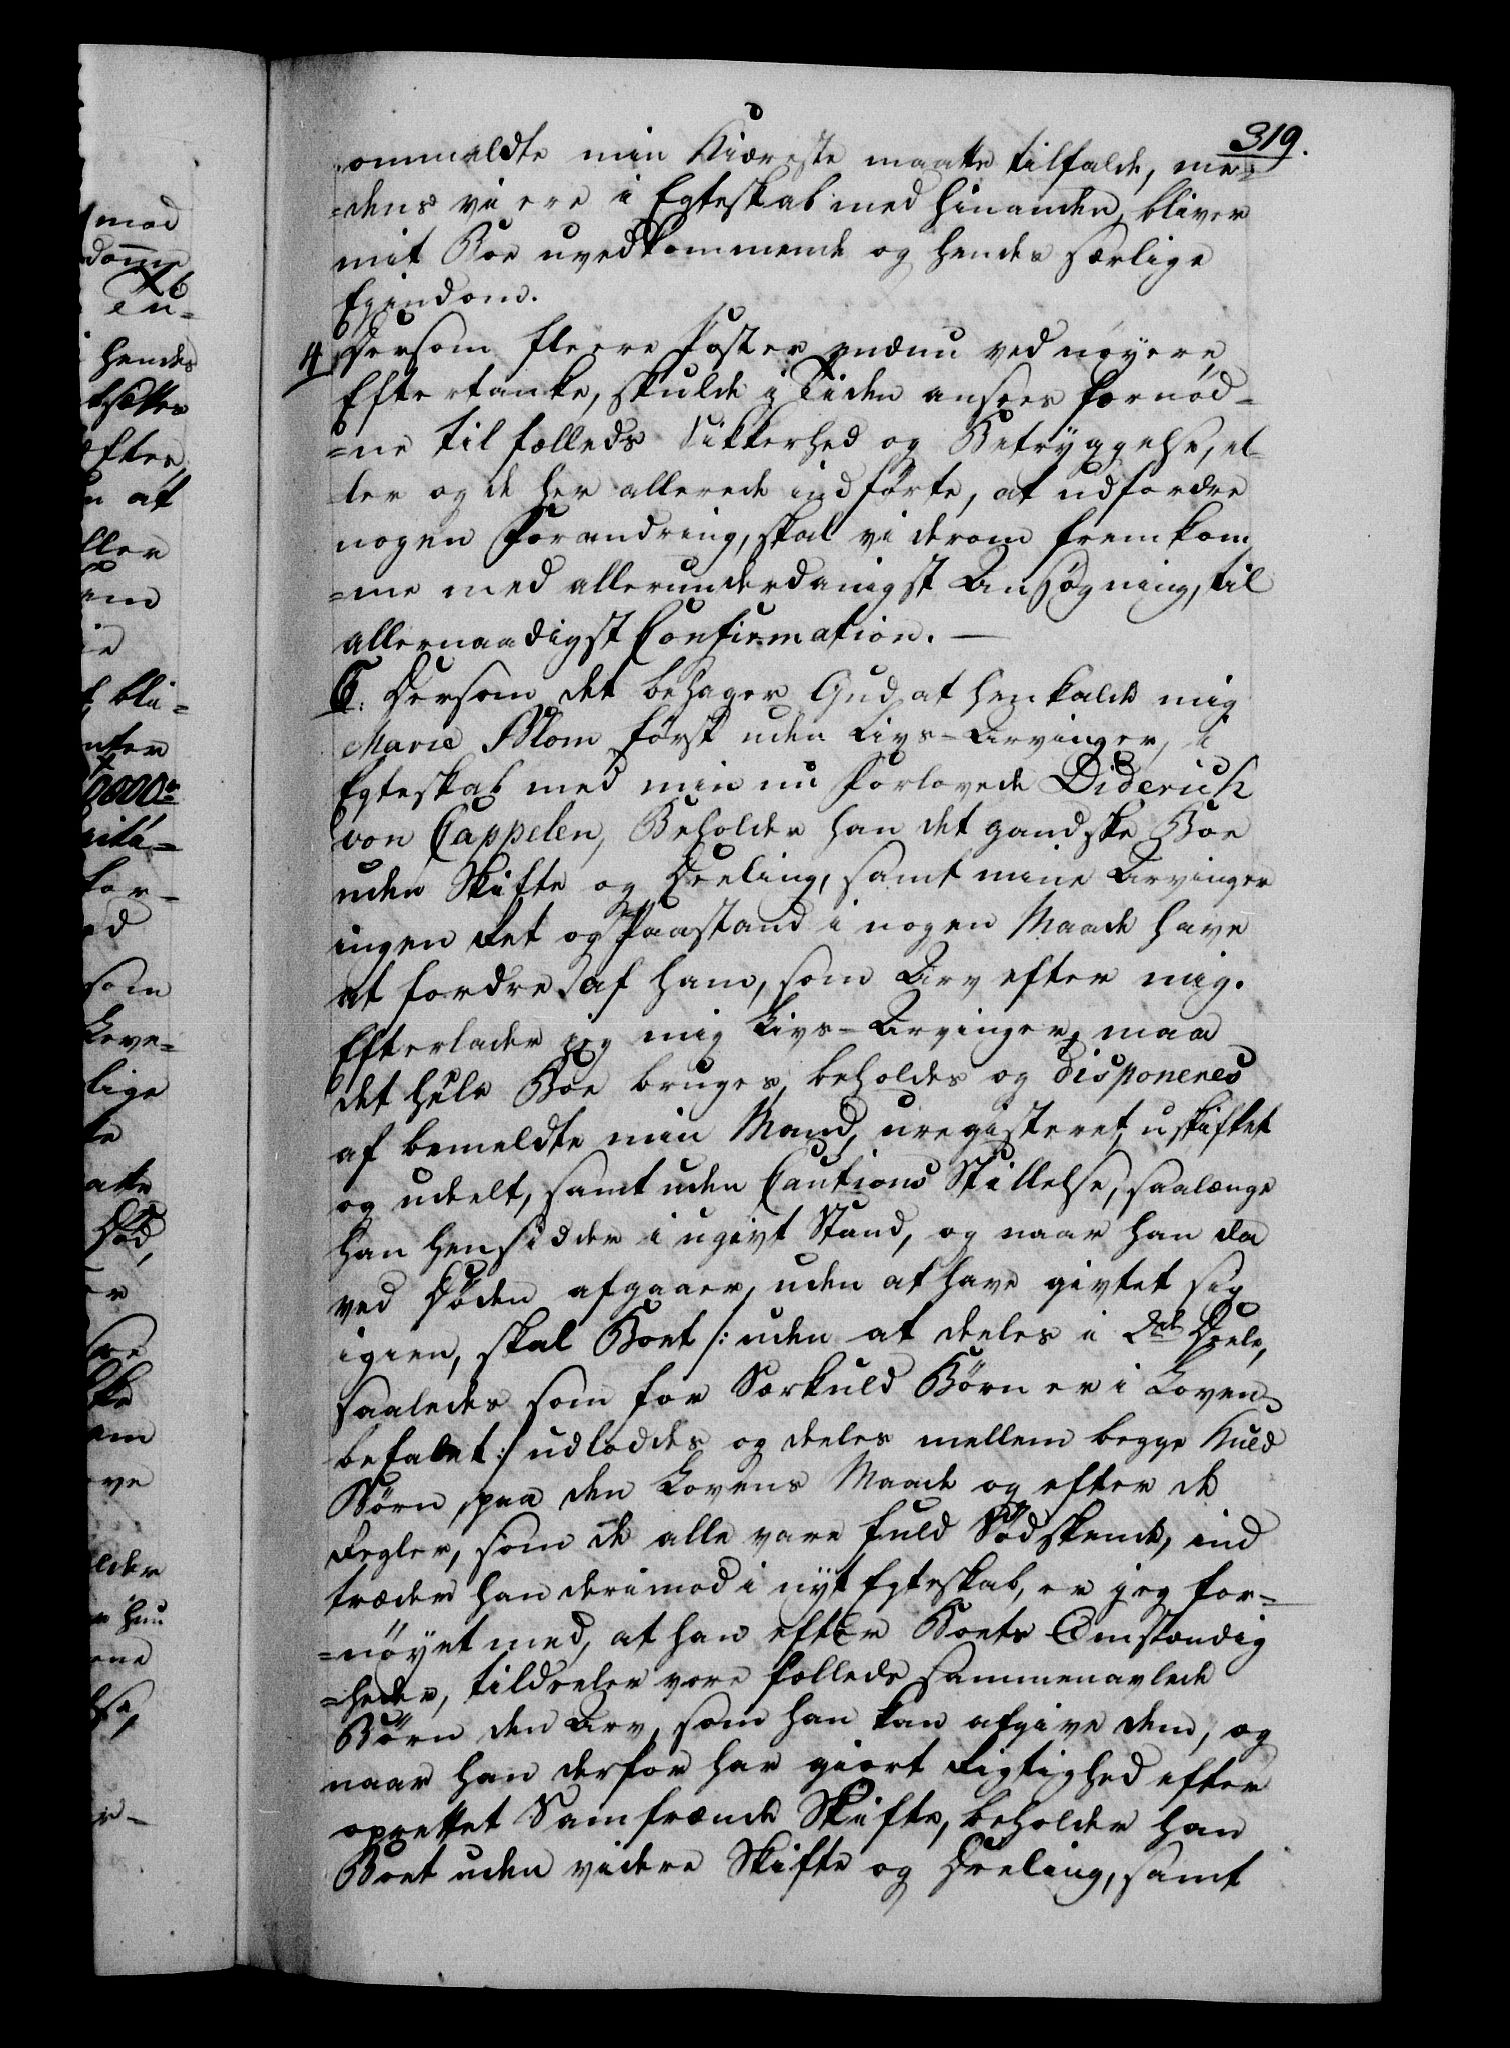 319.
ommeldte min Kiæreste maatte tilfalde, me-
=dens vi ere i Egteskab med hinanden, bliver
mit Boe uvedkommende og hendes særlige
Egendom.
4 Dersom fleere Poster endnu ved nøyere
Eftertanke, skulde i Tiden ansees fornød-
=ne til fælleds Sikkerhed og Betryggelse, el-
ler og de her allerede indførte, at udfordre
nogen Forandring, skal vi derom fremkom
=me med allerunderdanigst Ansøgning, til
allernaadigst Confirmation. —
C. Dersom det behager Gud at henkalde mig
Marie Blom først uden Livs-Arvinger, i
Egteskab med min nu forlovede Diderich
von Cappelen, Beholder han det gandske Boe
uden Skifte og Deeling, samt mine Arvinger
ingen Ret og Paastand i nogen Maade have
at fordre af ham, som Arv efter mig.
Efterlader jeg mig Livs-Arvinger, maa
det hele Boe bruges, beholdes og disponeres
af bemeldte min Mand, uregisteret, uskiftet
og udeelt, samt uden Cautions Stillelse, saalænge
han hensidder i ugivt Stand, og naar han da
ved Døden afgaaer, uden at have givtet sig
igien, skal Boet /: uden at deeles i 2de Deele,
saaledes som for Særkuld Børn er i Loven
befalet :/ udloddes og deeles mellem begge Kuld
Børn, paa den Lovens Maade og efter de
Regler, som de alle vare fuld Sødskende, ind
træder han derimod i nyt Egteskab, er jeg for-
=nøyet med, at han efter Boets Omstændig
=heder, tildeeler vore fælleds sammenavlede
Børn den Arv, som han kan afgive dem, og
naar han derfor har giort Rigtighed efter
oprettet Samfrænde Skifte, beholder han
Boet uden videre Skifte og Deeling, samt
mod
hendes
Efter
at
ller
bli=
nter
for=
som
Leve=
lige
Død,